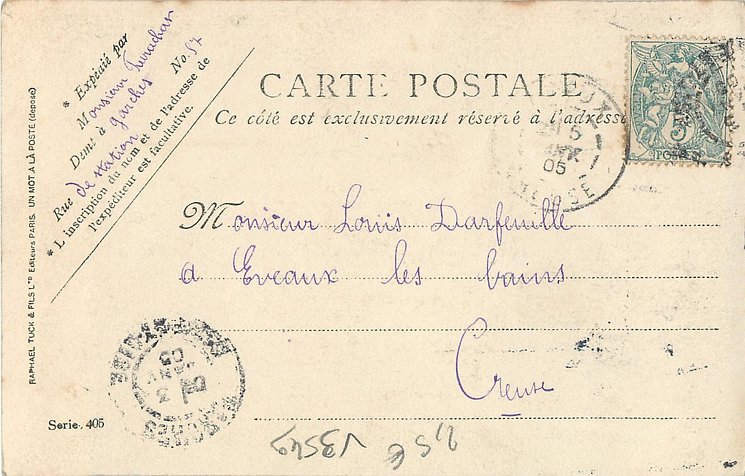 * Expédié par
Monsieur
Demt à Garches
Rue de station No. 57
* L'inscription du nom et de l'adresse de
l'expéditeur est facultative.
RAPHAEL TUCK & FILS Lᵀᴰ Editeurs PARIS. UN MOT A LÀ POSTE (déposé)
CARTE POSTALE
Ce côté est exclusivement réservé à l'adresse
5
05
5
POSTES
Monsieur Louis Darfeuille
a Eveaux les bains
Creuse
GARCHES
SEINE-ET-OISE
05
Serie. 405
V3549
2,5 €